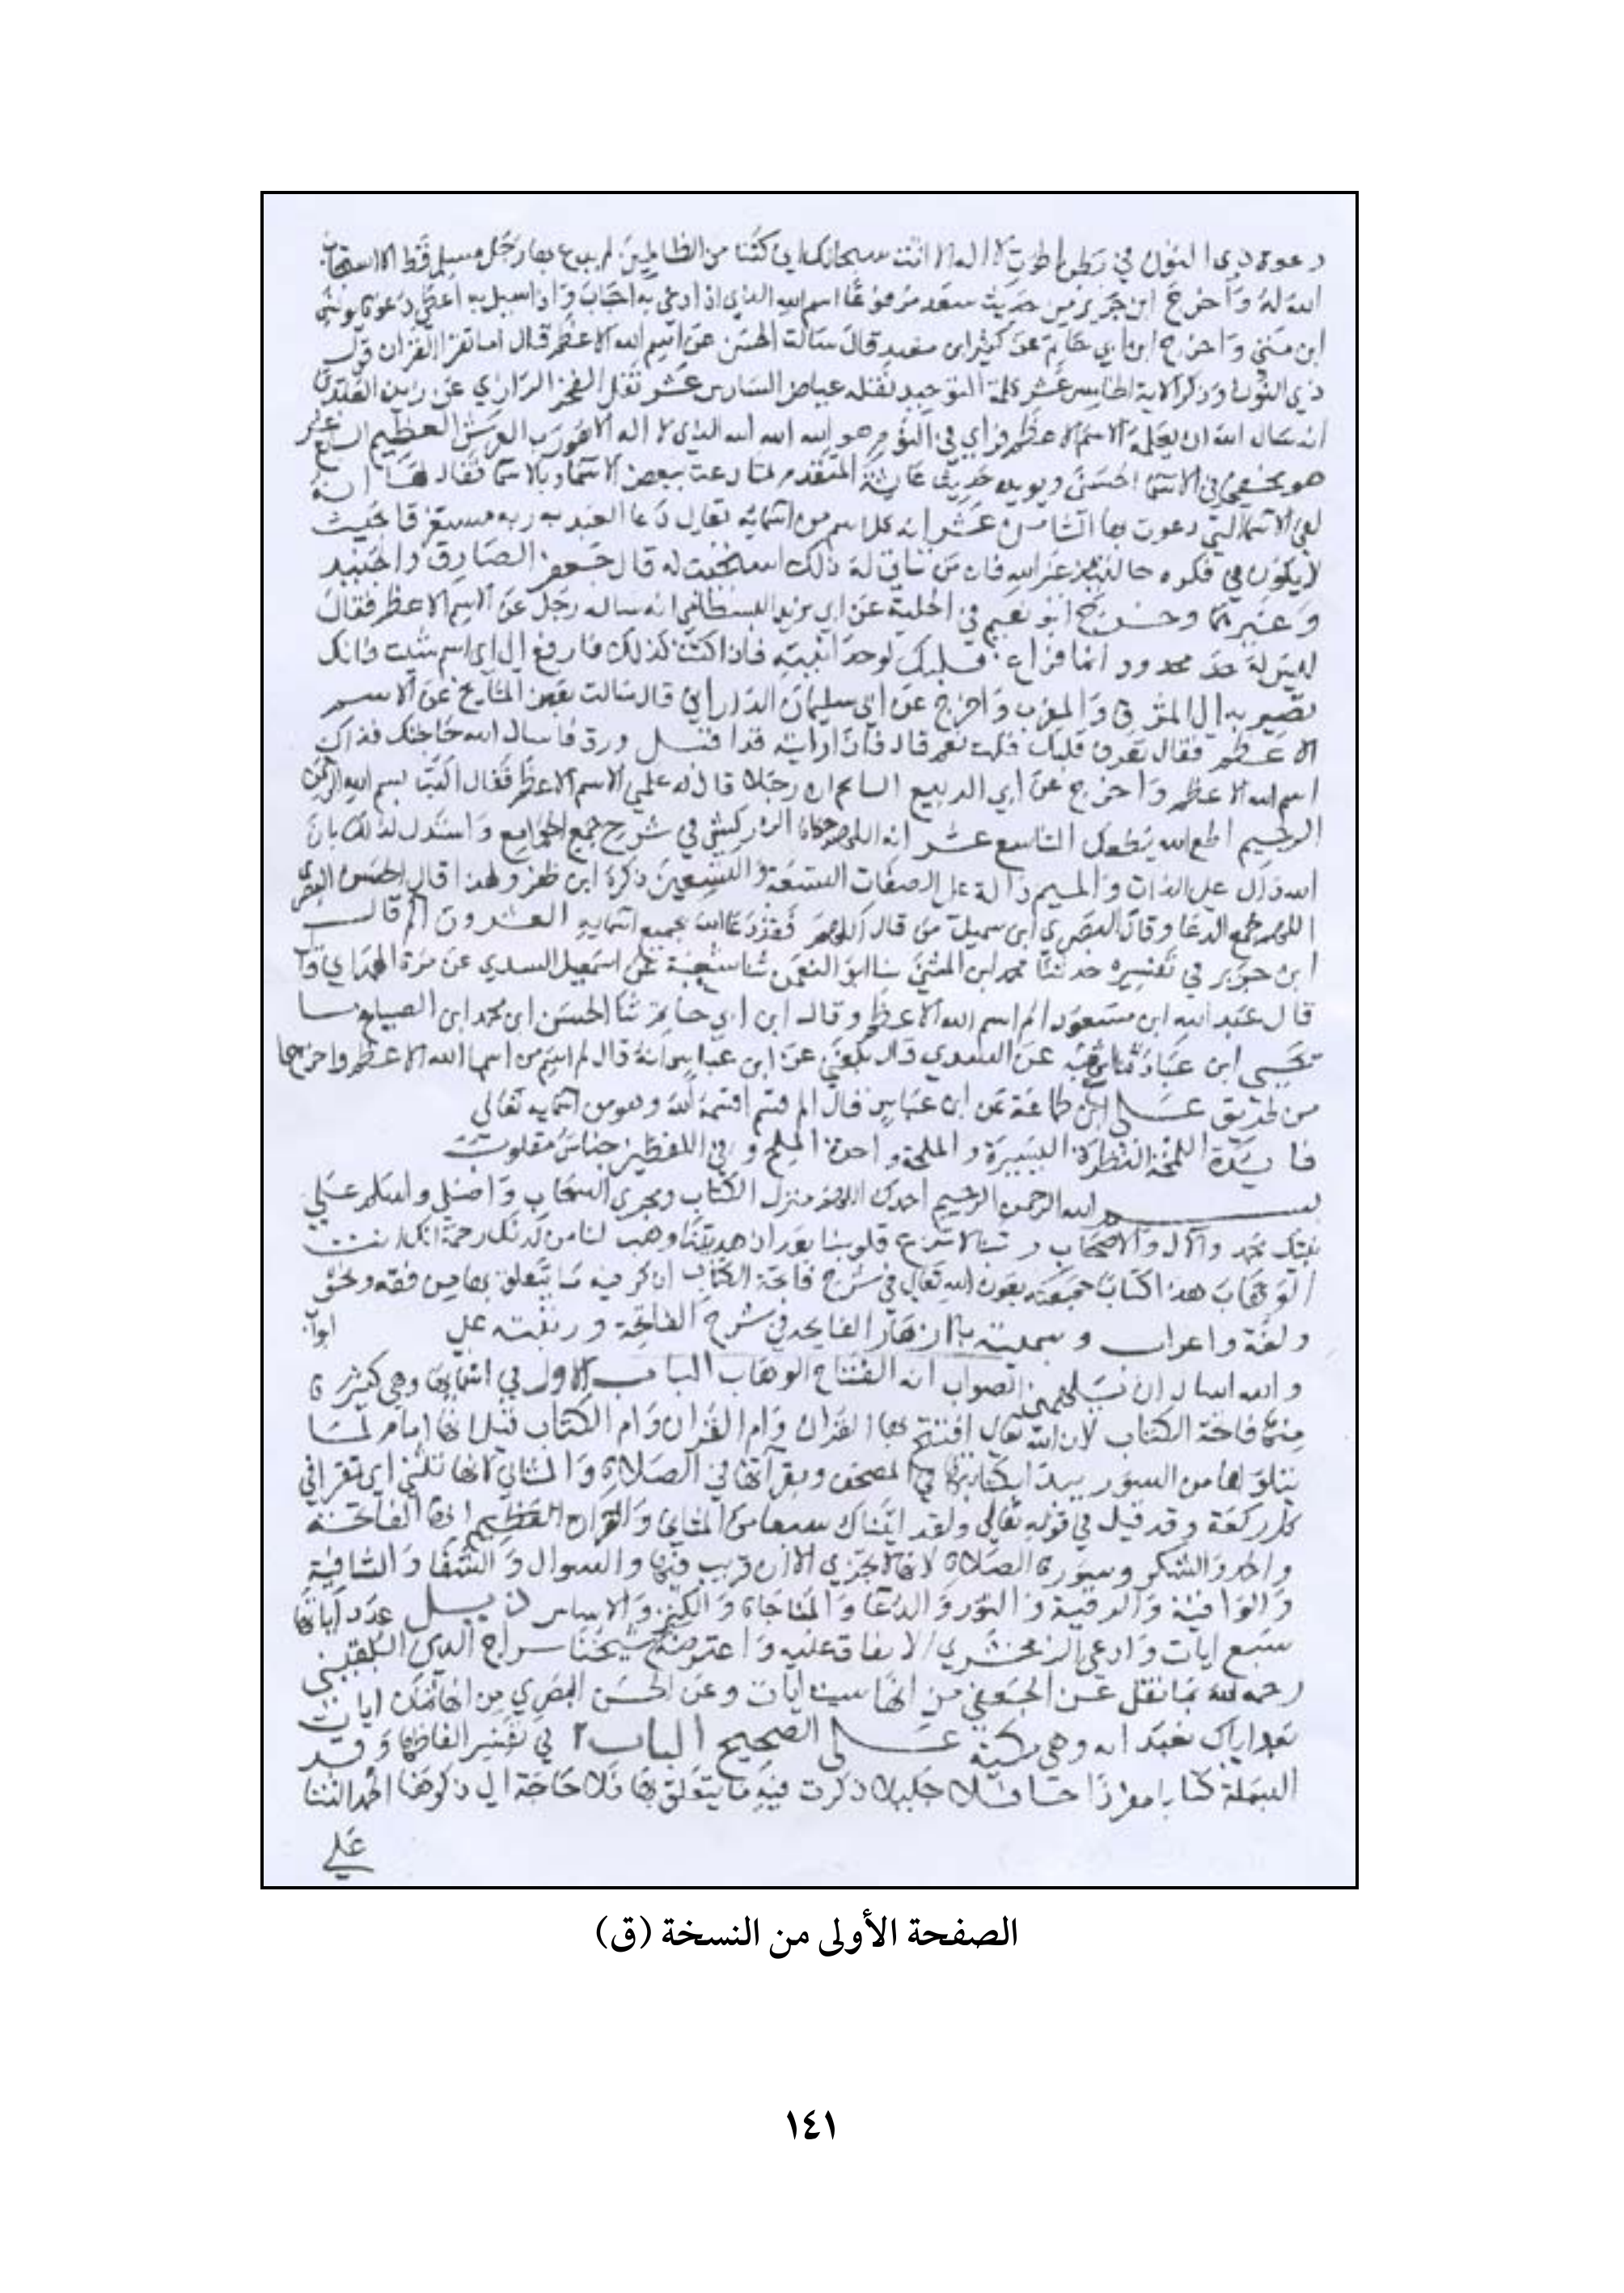 دعوة ذي النون في بطن الحوت لا اله الا انت سبحانك اني كنت من الظالمين لم يدع بها رجل مسلم قط الا استجاب
الله له واخرج ابن جرير من حديث سعد مرفوعا اسم الله الذي اذا دعي به اجاب واذا سيل به اعطى دعوة يونس
ابن متي واخرج ابن ابي حاتم عن كثير ابن معبد قال سالت الحسن عن اسم الله الاعظم قال اما تقرا القران قول
ذي النون وذكر الاية الخامس عشر كلمة التوحيد نقله عياض السادس عشر نقل الفخر الرازي عن زين العابدين
انه سال الله ان يعلمه الاسم الاعظم فراي في النوم هو الله الله الله الذي لا اله الا هو رب العرش العظيم السابع عشر
هو مخفي في الاسما الحسنى ويويده حديث عايشة المتقدم لما دعت ببعض الاسما وبالاسما فقال لها انه
لفي الاسما التي دعوت بها الثامن عشر انه كل اسم من اسمايه تعالى دعا العبد به ربه مستغرقا بحيث
لا يكون في فكره حالتيذ غير الله فان من تاتى له ذلك استجيب له قال جعفر الصادق والجنيد
وغيرهما وخرج ابو نعيم في الحلية عن ابي يزيد البسطامي انه ساله رجل عن الاسم الاعظم فقال
ليس له حد محدود انما فراغ قلبك لوحدانيته فاذا كنت كذلك فارفع الى اي اسم شيت فانك
تصير به الى المشرق والمغرب واخرج عن ابي سليمان الداراني قال سالت بعض المشايخ عن الاسم
الاعظم فقال تعرف قلبك قلت نعم قال فاذا رايته قد اقبل ورق فاسال الله حاجتك فذاك
اسم الله الاعظم واخرج عن ابي الربيع السايح ان رجلا قال له علمني الاسم الاعظم فقال اكتب بسم الله الرحمن
الرحيم اطع الله يطعك التاسع عشر انه اللهم حكاه الزركشي في شرح جمع الجوامع واستدل لذلك بان
الله دال على الذات والميم دالة على الصفات التسعة والتسعين ذكره ابن ظفر ولهذا قال الحسن البصري
اللهم مجمع الدعا وقال النضر ابن شميل من قال اللهم فقد دعا الله بجميع اسمايه العشرون الم قال
ابن جرير في تفسيره حدثنا محمد ابن المثنى ثنا ابو النعمن ثنا شعبة عن اسمعيل السدي عن مرة الهمداني قال
قال عبد الله ابن مسعود الم اسم الله الاعظم وقال ابن ابي حاتم ثنا الحسن ابن محمد ابن الصباح ثنا
يحيى ابن عباد ثنا شعبة عن السدي قال بلغني عن ابن عباس انه قال الم اسم من اسما الله الاعظم واخرجا
من طريق علي ابن طلحة عن ابن عباس قال الم قسم اقسمه الله وهو من اسمايه تعالى
فايدة اللمحة النظرة اليسيرة والملحة واحدة الملح وفي اللفظين جناس مقلوب
بسم الله الرحمن الرحيم احمدك اللهم منزل الكتاب ومجري السحاب واصلي واسلم على
نبيك محمد وآل والاصحاب ربنا لا تزغ قلوبنا بعد اذ هديتنا وهب لنا من لدنك رحمة انك انت
الوهاب هذا كتاب جمعته بعون الله تعالى في شرح فاتحة الكتاب اذكر فيه ما يتعلق بها من فقه ونحو
ولغة واعراب وسميته بالازهار الفايحه في شرح الفاتحة ورتبته على ابواب
والله اسال ان يلهمني الصواب انه الفتاح الوهاب الباب الاول في اسمايها وهي كثيرة
منها فاتحة الكتاب لان الله تعالى افتتح بها القران وام القران وام الكتاب قيل لانها امام لما
يتلوها من السور يبدا بكتابتها في المصحف وبقراتها في الصلاة والمثاني لانها تثنى اي تقرا في
كل ركعة وقد قيل في قوله تعالى ولقد اتيناك سبعا من المثاني والقران العظيم انها الفاتحة
والحمد والشكر وسورة الصلاة لانها لا تجزي الا بها والسوال والشفا والشافية
والوافية والرقية والنور والدعا والمناجاة والكنز والاساس تذييل عدد آياتها
سبع ايات وادعى الزمخشري الاتفاق عليه واعترضه شيخنا سراج الدين البلقيني
رحمه الله بما نقل عن الجعفي من انها ست ايات وعن الحسن البصري من انها ثمان ايات
بعد اياك نعبد ايه وهي مكية على الصحيح الباب ٢ في تفسير الفاظها وقد
البسملة كتابا مفردا حافلا جليلا ذكرت فيه ما يتعلق بها فلا حاجة الى ذكرها الحمد الثنا
على
الصفحة الأولى من النسخة (ق)
١٤١